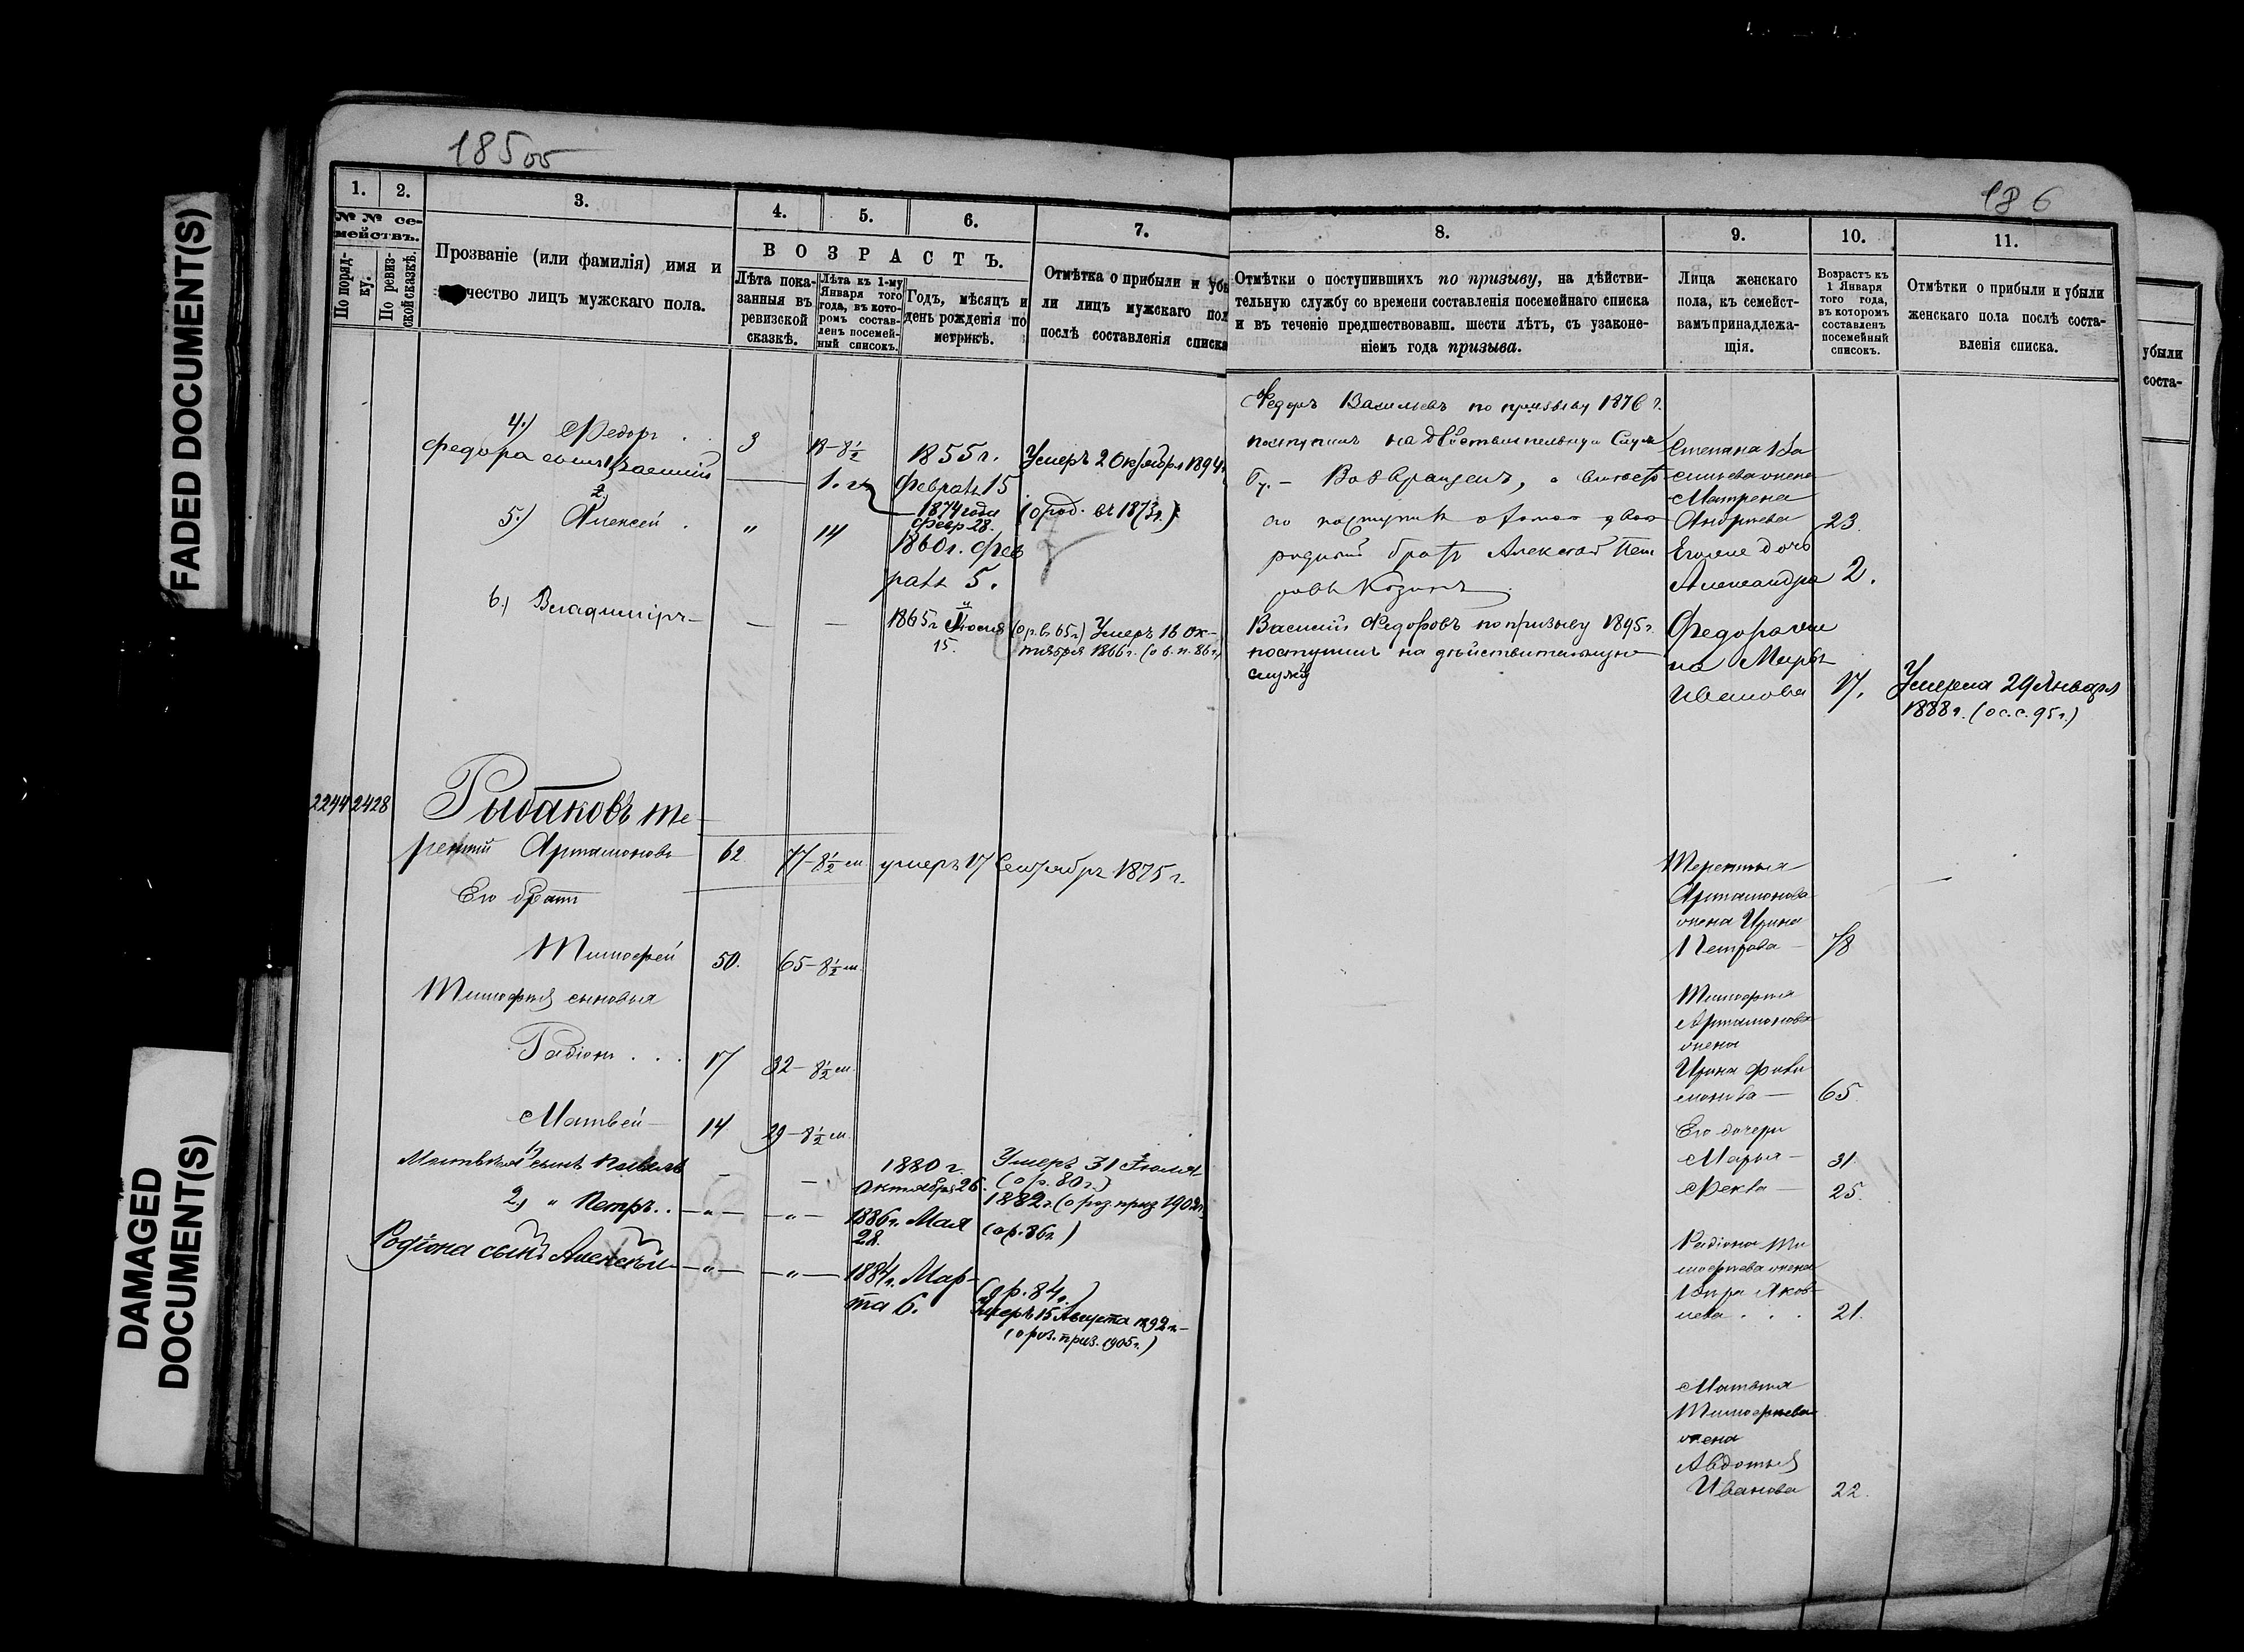 FADED DOCUMENT(S)
DAMAGED
DOCUMENT(S)
185 об
1.
2.
3.
4.
5.
6.
7.
№ № се-
мействъ.
По поряд-
ку.
По ревиз-
ской сказкѣ.
Прозваніе (или фамилія) имя и
чество лицъ мужскаго пола.
ВОЗРАСТЪ.
Лѣта пока-
занныя въ
ревизской
сказкѣ.
Лѣта къ 1-му
Января того
года, въ кото-
ромъ состав-
ленъ посемей-
ный списокъ.
Годъ, мѣсяцъ и
день рожденія по
метрикѣ.
Отмѣтка о прибыли и убы
ли лицъ мужскаго пол
послѣ составленія списка
4.) Федоръ
3
18-8½
1855 г.
Февраля 15
Умеръ 2 Октября 1894
Федора сынъ Василий
1 г.
1874 года
Февр 28.
(о род. въ 1873 г.)
2
5.) Алексей
"
14
1860 г. Фев
раля 5.
6.) Владимиръ
1865 г. Іюля
15.
(о р. в 65 г.) Умеръ 16 Ок-
тября 1866 г. (о в. п. 86 г.)
2244
2428
Рыбаковъ Те-
рентій Артамоновъ
62
77-8½ м
умеръ 17 Сентября 1875 г.
Его братъ
Тимофей
50.
65-8½ м
Тимофея сыновья
Радіонъ . . .
17
32-8½ м.
Матвей
14
29-8½ м.
Матвѣя 1) сынъ Павелъ
1880 г.
Октября 26.
Умеръ 31 Іюля
(о р. 80 г.)
1882 г. (о роз. приз 1902 г.
2) " Петръ . .
"
"
1886 г. Мая
28.
(о р. 86 г.)
Родіона сынъ Алексѣй
"
"
1884 г. Мар-
та 6.
(о р. 84 г.)
Умеръ 15 Августа 1892 г.
(о роз. приз. 1905 г.)
186
8.
9.
10.
11.
Отмѣтки о поступившихъ по призыву, на дѣйстви-
тельную службу со времени составленія посемейнаго списка
и въ теченіе предшествовавш. шести лѣтъ, съ узаконе-
ніемъ года призыва.
Лица женскаго
пола, къ семейст-
вамъ принадлежа-
щія.
Возрастъ къ
1 Января
того года,
въ которомъ
составленъ
посемейный
списокъ.
Отмѣтки о прибыли и убыли
женскаго пола послѣ соста-
вленія списка.
Федоръ Васильевъ по призыву 1876 г.
поступилъ на действительную Служ
бу. - Возвращенъ, а вместо
его поступилъ двою
родный братъ Алексей Пет
ровъ
Василій Федоровъ по призыву 1895 г.
поступилъ на дѣйствительную
службу
Степана Ва
сильева жена
Матрена
Андреева
23.
Его дочь
Александра
2.
Федора же
на Марья
Иванова
17.
Умерла 29 Января
1888 г. (о с. с. 95 г.)
Терентья
Артамонова
жена Ирина
Петрова
78
Тимофея
Артамонова
жена
Ирина Фили
монова
65.
Его дочери
Марья
31.
Фекла
25.
Радіона Ти
мофеева жена
Яков-
лева . . .
21.
Матвея
Тимофеева
жена
Авдотья
Иванова
22.
убыли
соста-